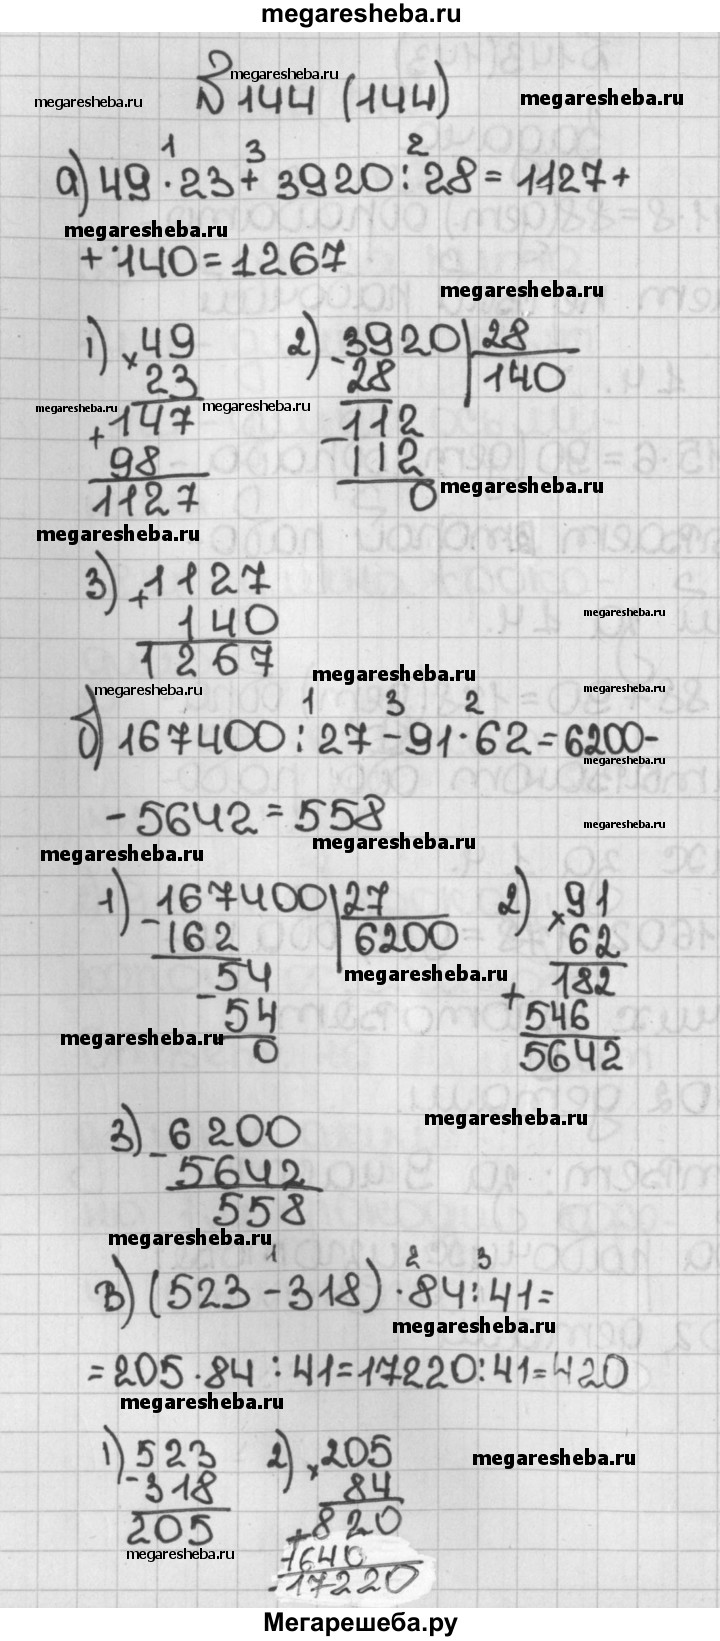 megaresheba.ru
№144 (144)
megaresheba.ru
megaresheba.ru
megaresheba.ru
1 3 2
а) 49·23+3920:28=1127+
megaresheba.ru
+140=1267
megaresheba.ru
1) ×49
23
+147
98
1127
2) -3920 28
28 140
-112
112
0
megaresheba.ru
megaresheba.ru
megaresheba.ru
megaresheba.ru
3) +1127
140
1267
megaresheba.ru
megaresheba.ru
megaresheba.ru
1 3 2
б) 167400:27-91·62=6200-
megaresheba.ru
-5642=558
megaresheba.ru
megaresheba.ru
megaresheba.ru
1) -167400 27
162 6200
-54
54
0
2) ×91
62
+182
546
5642
megaresheba.ru
megaresheba.ru
3) -6200
5642
558
megaresheba.ru
megaresheba.ru
1 2 3
в) (523-318)·84:41=
megaresheba.ru
=205·84:41=17220:41=420
megaresheba.ru
1) -523
318
205
2) ×205
84
+820
1640
17220
megaresheba.ru
megaresheba.ru
Мегарешеба.ру